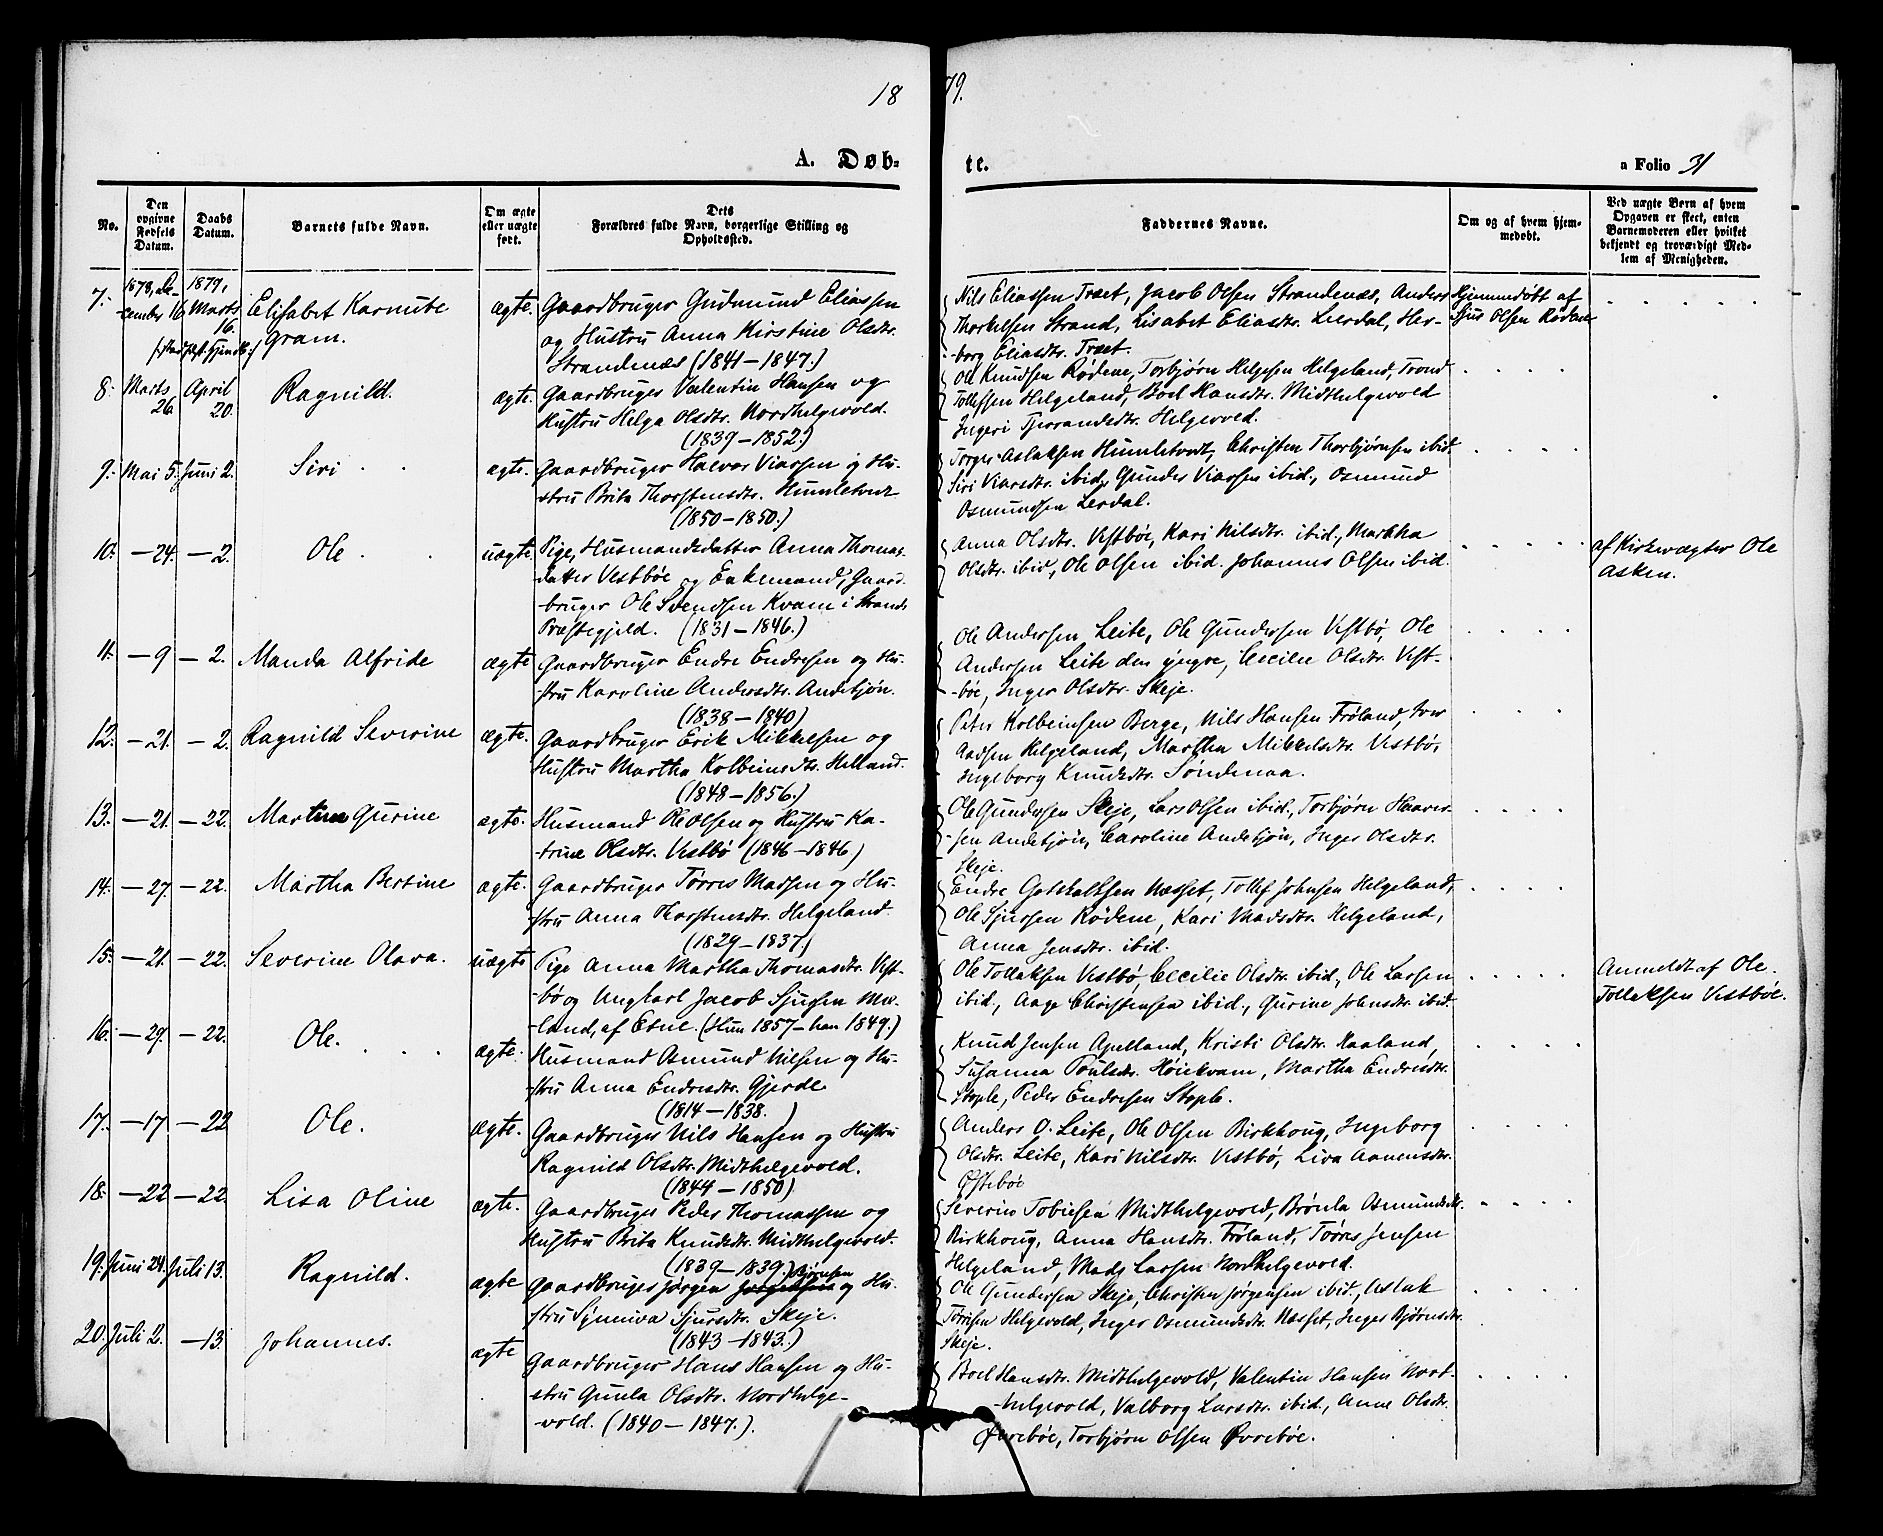 1879.
A. Døbte.
a Folio 31
No.
Den opgivne Fødsels Datum.
Daabs Datum.
Barnets fulde Navn.
Om ægte eller uægte født.
Dets Forældres fulde Navn, borgerlige Stilling og Opholdssted.
Faddernes Navne.
Om og af hvem hjemmedøbt.
Ved uægte Børn af hvem Opgaven er skeet, enten Barnemoderen eller hvilket bekjendt og troværdigt Medlem af Menigheden.
7. 1878, December 16. 1879, Marts 16. Elisabet Karnute Gram. ægte. Gaardbruger Gudmund Eliassen
og Hustru Anna Kirstine Olsdtr.
Strandenæs (1841-1847.)
Nils Eliassen Træt, Jacob Olsen Strandenæs, Anders
Thorkelsen Strand, Lisabet Eliasdtr. Leerdal, Her-
-borg Eliasdtr. Træt.
Hjemmedøbt af
Sjur Olsen Rødene
8. Marts 26. April 20. Ragnild. ægte. Gaardbruger Valentin Hansen og
Hustru Helga Olsdtr. Nordhelgevold.
(1839-1852.)
Ole Knudsen Rødene, Torbjørn Helgesen Helgeland, Trond
Tollefsen Helgeland, Boel Hansdtr. Midthelgevold
Ingeri Tjerandsdtr. Helgevold.
9. Mai 5. Juni 2. Siri ægte. Gaardbruger Halvor Viarsen og Hu-
stru Brita Thorstensdtr. Humletvedt
(1850-1850.)
Torger Aslaksen Humletvedt, Christen Thorbjørnsen ibid.
Siri Viarsdtr. ibid., Gunder Viarsen ibid., Osmund
Osmundsen Lerdal.
10. -24. -2. Ole uægte. Pige, Husmandsdatter Anna Thomas-
datter Vestbøe og Enkemand, Gaard-
-bruger Ole Svendsen Kvam i Strands
Præstegjeld. (1831-1846.)
Anna Olsdtr. Vestbøe, Kari Nilsdtr. ibid., Martha
Olsdtr. ibid, Ole Olsen ibid. Johannes Olsen ibid.
af Kirkeværger Ole
Asken.
11. -9 -2. Manda Alfride ægte Gaardbruger Endre Endresen og Hu-
stru Karoline Andersdtr. Andetjøn.
(1838-1840)
Ole Andersen Leite, Ole Gundersen Vestbø, Ole
Andersen Leite den yngre, Cecilie Olsdtr. Vest-
-bøe, Inger Olsdtr. Skeje.
12. -21. -2. Ragnild Severine ægte. Gaardbruger Erik Mikkelsen og
Hustru Martha Kolbeinsdtr. Helland.
(1848-1856.)
Peter Kolbeinsen Berge, Nils Hansen Frøland, Iver
Aadsen Helgeland, Martha Mikkelsdtr. Vestbø,
Ingeborg Knudsdtr. Søndenaa.
13. -21. -22. Martine Gurine ægte. Husmand Ole Olsen og Hustru Ka-
-trine Olsdtr. Vestbø (1846-1846)
Ole Gundersen Skeje, Lars Olsen ibid., Torbjørn Haaver-
sen Andetjøn, Caroline Andetjøn, Inger Olsdtr.
Skeje.
14. -27. -22. Martha Bertine ægte. Gaardbruger Tørres Madsen og Hu-
stru Anna Thorstensdtr. Helgeland.
(1829-1837.)
Endre Gotskalksen Næsset, Tollef Johnsen Helgeland,
Ole Sjursen Rødene, Kari Madsdtr. Helgeland,
Anna Jensdtr. ibid.
15. -21. -22. Severine Olava. uægte Pige Anna Martha Thomasdtr. Vest-
-bø og Ungkarl Jacob Sjursen Mæ-
-land, af Etne. (Hun 1857-han 1849.)
Ole Tollaksen Vestbø, Cecilie Olsdtr. ibid., Ole Larsen
ibid., Aage Christensen ibid., Gurine Johnsdtr. ibid.
Anmeldt af Ole
Tollaksen Vestbøe.
16. -29. -22. Ole. ægte. Husmand Osmund Nilsen og Hu-
stru Anna Endresdtr. Gjerde
(1814-1838.)
Knud Jensen Apelland, Kristi Olsdtr. Raaland,
Susanna Poulsdtr. Høiekvam, Martha Endresdtr.
Stople, Peder Endresen Stople.
17. -17. -22 Ole. ægte. Gaardbruger Nils Hansen og Hustru
Ragnild Olsdtr. Midthelgevold.
(1844-1850)
Anders O. Leite, Ole Olsen Birkhoug, Ingeborg
Olsdtr. Leite, Kari Nilsdtr. Vestbø, Liva Aanensdtr.
Østebøe
18. -22 -22. Lisa Oline ægte. Gaardbruger Peder Thomassen og
Hustru Brita Knudsdtr. Midthelgevold.
(1839-1839.)
Severin Tobiesen Midthelgevold, Brønla Osmundsdtr.
Birkhoug, Anna Hansdtr. Frøland, Tørres Jensen
Helgeland, Mads Larsen Nordhelgevold.
19. Juni 24. Juli 13. Ragnild. ægte Gaardbruger Jørgen Bjørnsen og Hu-
stru Synneva Sjursdtr. Skeje.
(1843-1843.)
Ole Gundersen Skeje, Christen Jørgensen ibid., Aslak
Tørrisen Helgevold, Inger Osmundsdtr. Næsset, Inger Bjørnsdtr.
Skeje.
20. Juli 2. -13. Johannes. ægte Gaardbruger Hans Hansen og Hu-
stru Gunla Olsdtr. Nordhelge-
-vold. (1840-1847.)
Boel Hansdtr. Midthelgevold, Valentin Hansen Nord-
-helgevold, Valborg Larsdtr. ibid., Anne Olsdtr.
Øvrebøe, Torbjørn Olsen Øvrebøe.